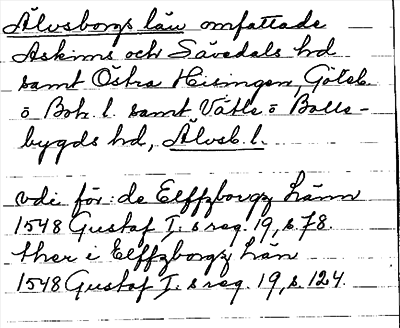 Älvsborgs län omfattade
Askims och Sävedals hd
samt Östra Hisingen, Göteb.
o Boh. l. samt Vätle o Bolle-
bygds hd, Älvsb. l.
vdi för: de Elffzborgz Länn
1548 Gustaf I:s reg. 19, s. 78.
ther i Elffzborgz län
1548 Gustaf I:s reg. 19, s. 124.